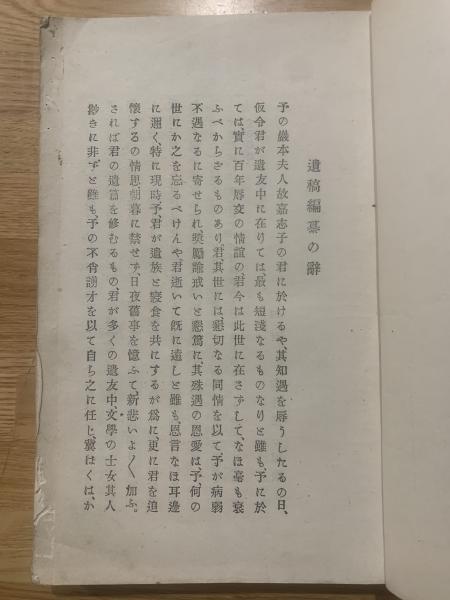 遺稿編纂の辭
予の巖本夫人故嘉志子の君に於けるや、其知遇を辱うしたるの日、
仮令君が遺友中に在りては最も短淺なるものなりと雖も、予に於
ては、實に百年辱交の情誼の君、今は此世に在さずして、なほ毫も衰
ふべからざるものあり君其世には懇切なる同情を以て、予が病弱
不遇なるに寄せられ奬勵諭戒いと懇篤に、其殊遇の恩愛は、予、何の
世にか之を忘るべけんや君逝いて既に遠しと雖も、恩言なほ耳邊
に邇く、特に現時予、君が遺族と寢食を共にするが爲に、更に君を追
懷するの情思朝暮に禁せず、日夜舊事を憶ふて、新悲いよ〱加ふ。
されば君の遺篇を修むるもの、君が多くの遺友中、文學の士女其人
尠きに非ずと雖も、予の不肖謭才を以て自ら之に任じ、冀はくは、か